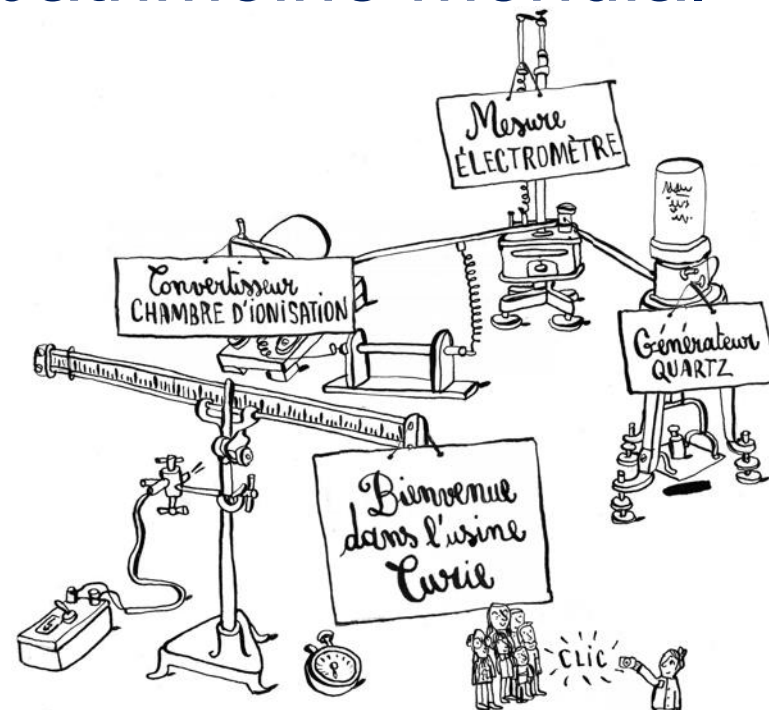 patrimoine mondial
Mesure
ÉLECTROMÈTRE
Convertisseur
CHAMBRE D'IONISATION
Générateur
QUARTZ
Bienvenue
dans l'usine
Curie
CLIC